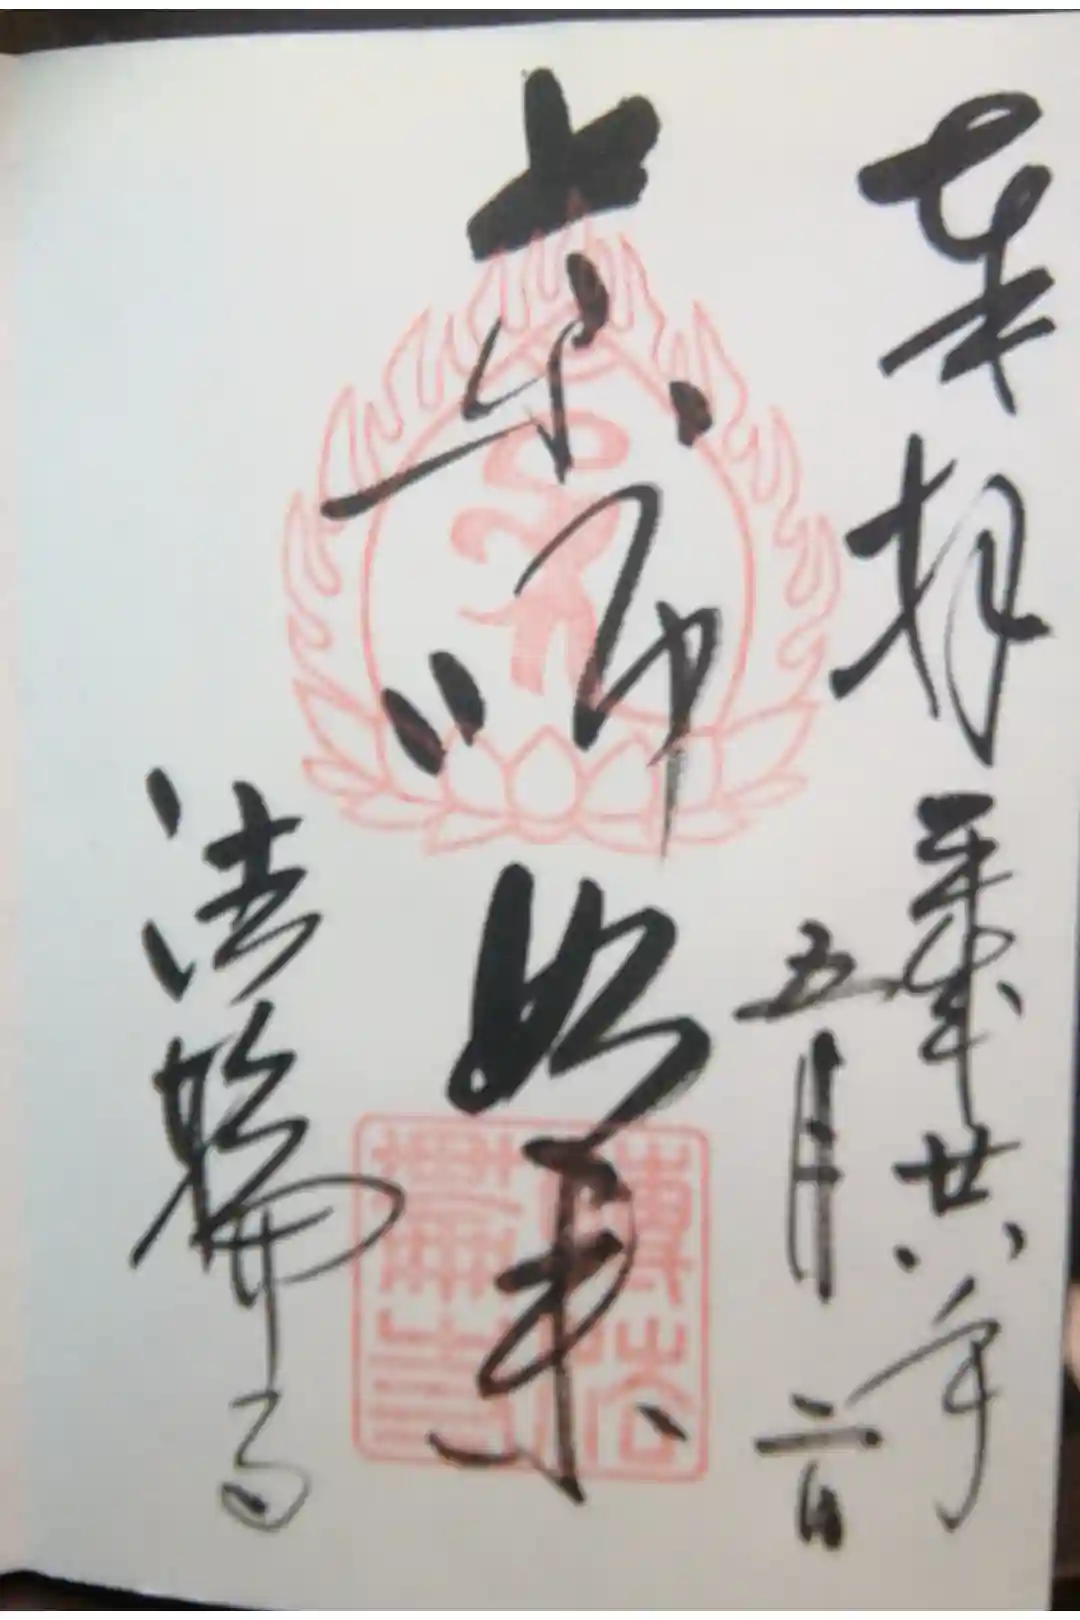 奉拝
平成廿八年
五月二日
薬師如来
法輪寺